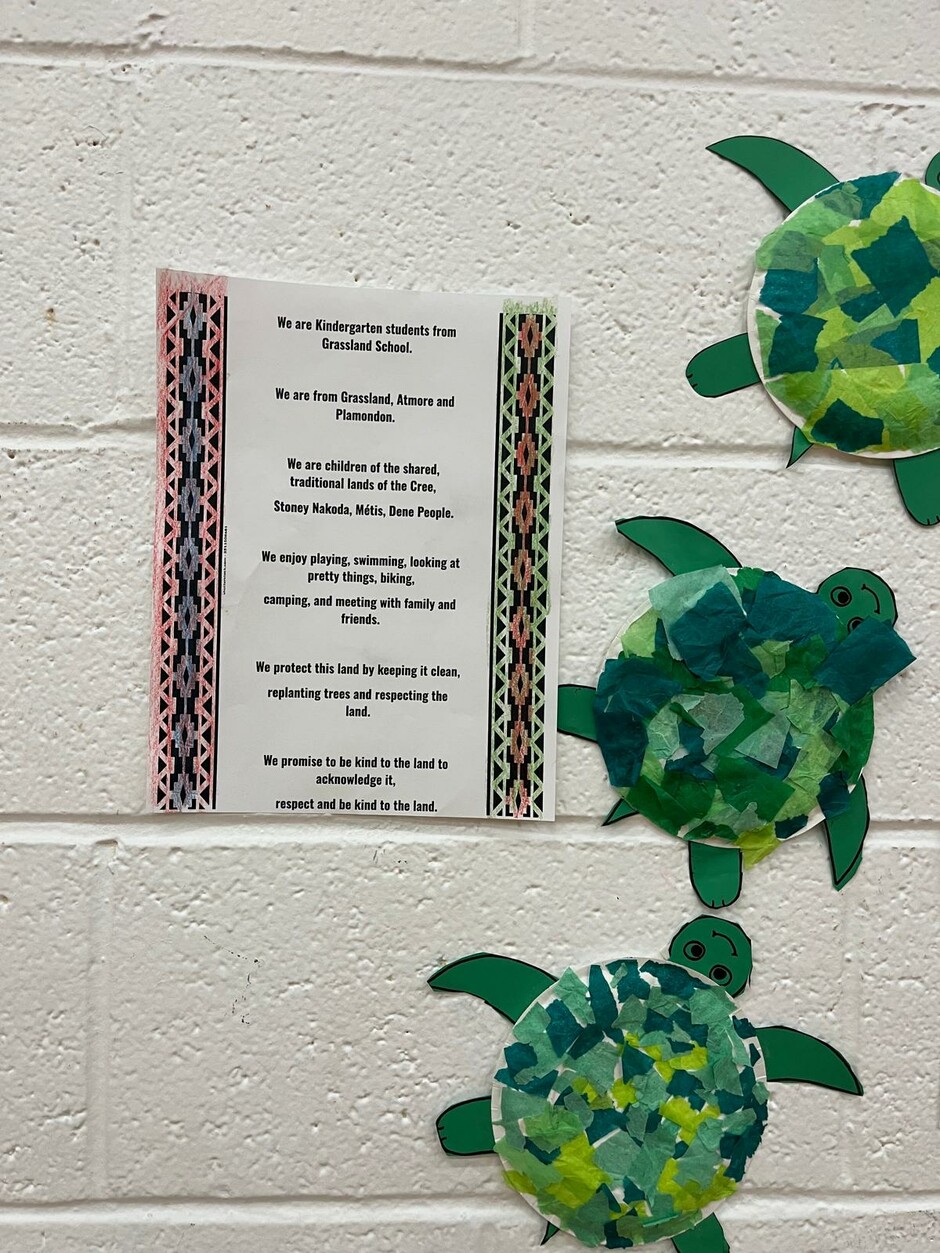 We are Kindergarten students from
Grassland School.
We are from Grassland, Atmore and
Plamondon.
We are children of the shared,
traditional lands of the Cree,
Stoney Nakoda, Métis, Dene People.
We enjoy playing, swimming, looking at
pretty things, biking,
camping, and meeting with family and
friends.
We protect this land by keeping it clean,
replanting trees and respecting the
land.
We promise to be kind to the land to
acknowledge it,
respect and be kind to the land.